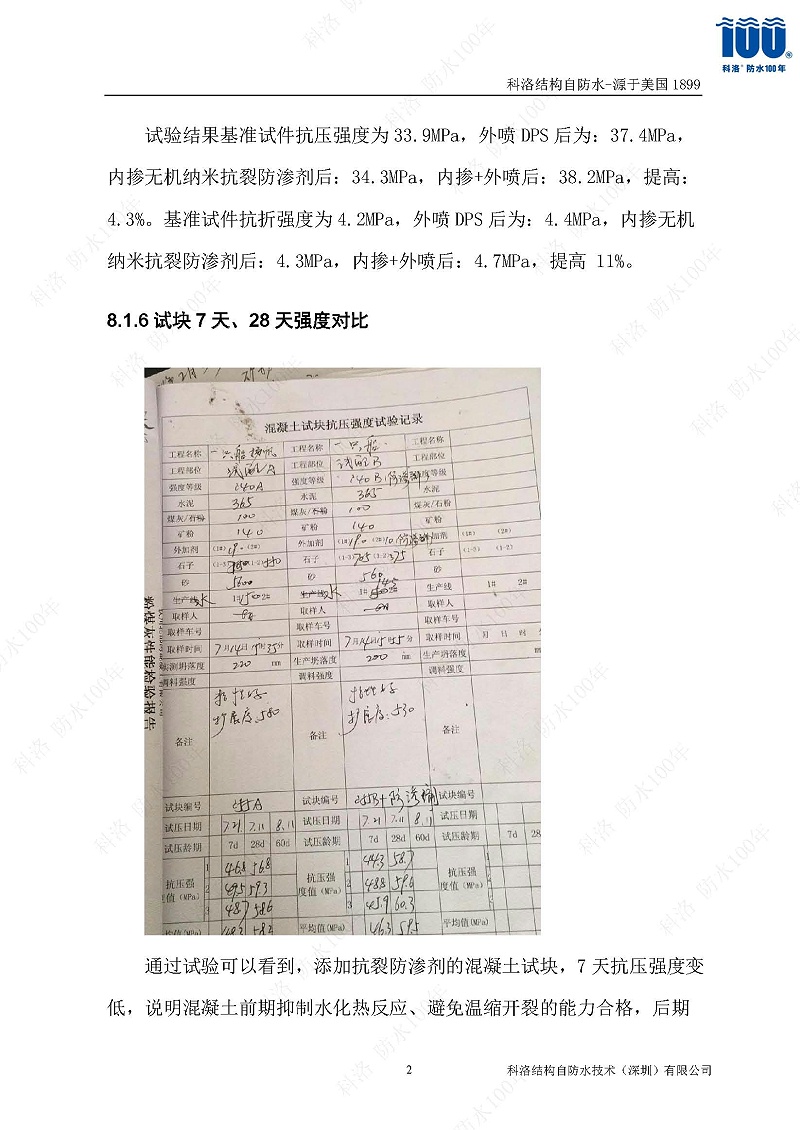 100
科洛® 防水100年
科洛结构自防水-源于美国 1899
试验结果基准试件抗压强度为 33.9MPa，外喷 DPS 后为：37.4MPa，
内掺无机纳米抗裂防渗剂后：34.3MPa，内掺+外喷后：38.2MPa，提高：
4.3%。基准试件抗折强度为 4.2MPa，外喷 DPS 后为：4.4MPa，内掺无机
纳米抗裂防渗剂后：4.3MPa，内掺+外喷后：4.7MPa，提高 11%。
8.1.6 试块 7 天、28 天强度对比
混凝土试块抗压强度试验记录
工程名称 工程名称 一只船 工程名称
工程部位 试配A 工程部位 试配B 工程部位
强度等级 强度等级 强度等级
水泥 365 水泥 365 水泥
煤灰/石粉 100 煤灰/石粉 100 煤灰/石粉
矿粉 140 矿粉 140 矿粉
外加剂 (1#) (2#) 外加剂 (1#) (2#) 外加剂 (1#) (2#)
石子 (1-3) (1-2) 石子 (1-3) (1-2) 石子 (1-3) (1-2)
砂 砂 560 砂
生产线 水 生产线 水 生产线 1# 2#
取样人 取样人 取样人
取样车号 取样车号 取样车号
取样时间 7月14日 35分 取样时间 7月14日15时55分 取样时间 月 日 时
坍落度 220 mm 生产坍落度 200 mm 生产坍落度
调料强度 调料强度 调料强度
扩展度:580 扩展度:530
备注 备注 备注
粉煤灰性能检验报告
试块编号 试块编号 防渗 试块编号
试压日期 7.21 7.11 8.11 试压日期 7.21 7.11 8.11 试压日期
试压龄期 7d 28d 60d 试压龄期 7d 28d 60d 试压龄期 7d 28
抗压强度值（MPa） 1 46.8 56.8 抗压强度值（MPa） 1 44.3 58.7 抗压强度值（MPa）
2 49.5 59.3 2 48.8 59.6
3 48.7 58.6 3 45.9 60.3
48.3 58.2 平均值(MPa) 46.3 59.5 平均值(MPa)
通过试验可以看到，添加抗裂防渗剂的混凝土试块，7 天抗压强度变
低，说明混凝土前期抑制水化热反应、避免温缩开裂的能力合格，后期
2
科洛结构自防水技术（深圳）有限公司